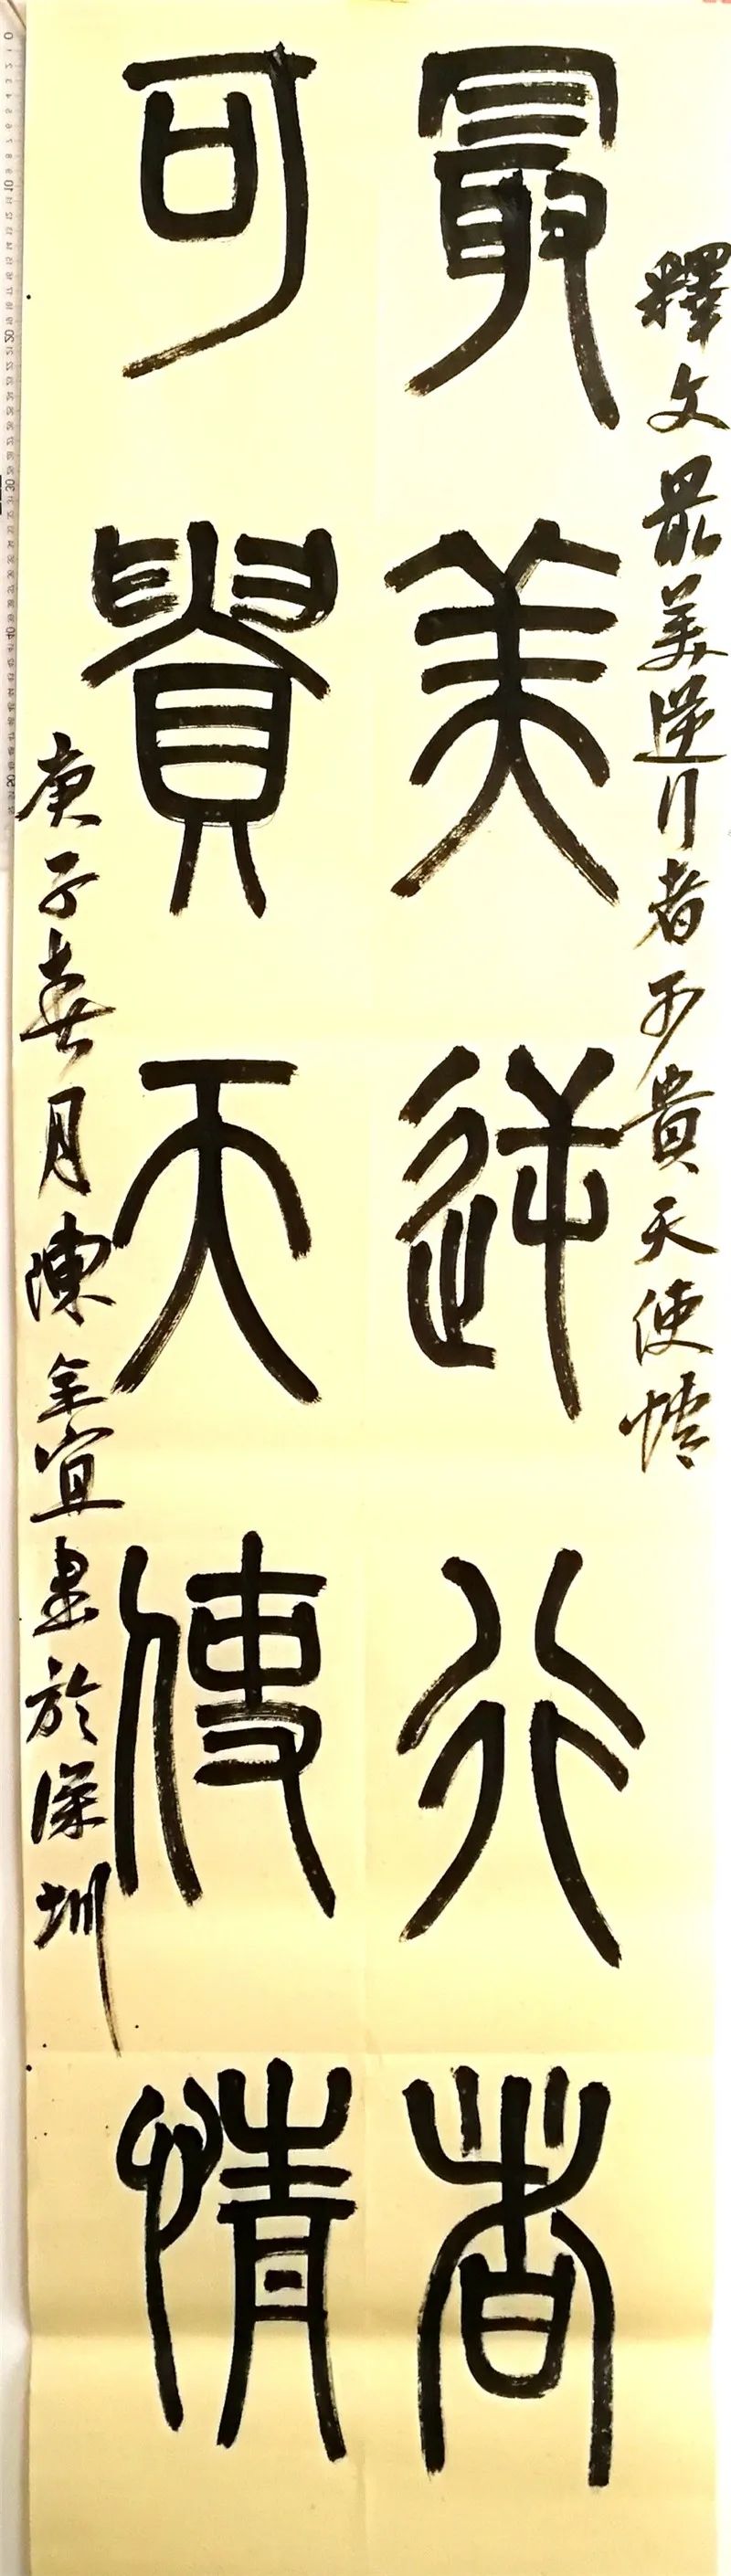 釋文最美逆行者可貴天使情
最美逆行者
可貴天使情
庚子春月陳金宜書於深圳